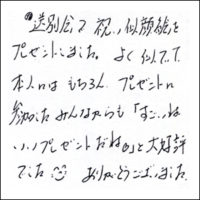 送別会で祝い似顔絵を
プレゼントしました。よく似てて、
本人はもちろん、プレゼントに
参加したみんなからも「すごいね
いいプレゼントだね。」と大好評
でした ありがとうございました。